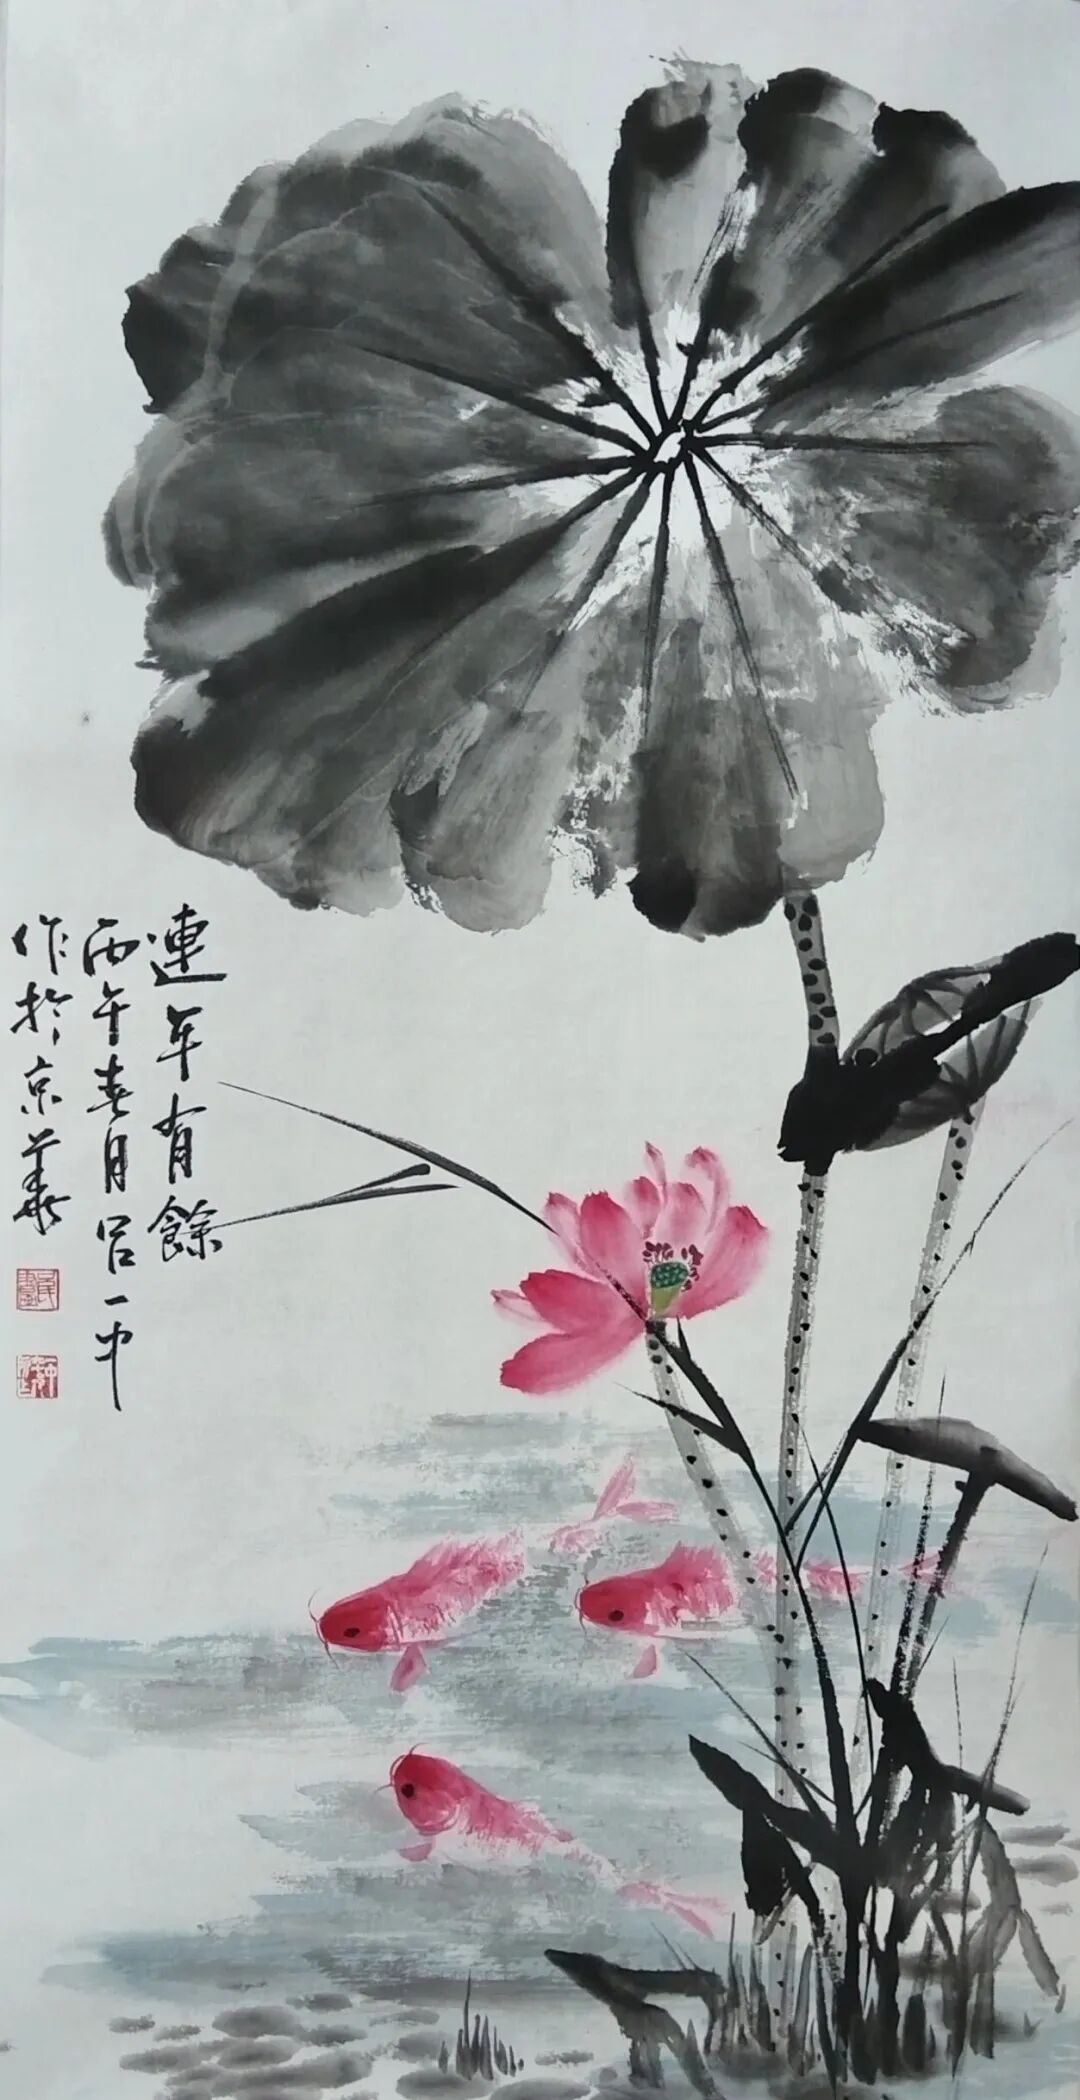 連年有餘
丙午春月呂一中
作於京華